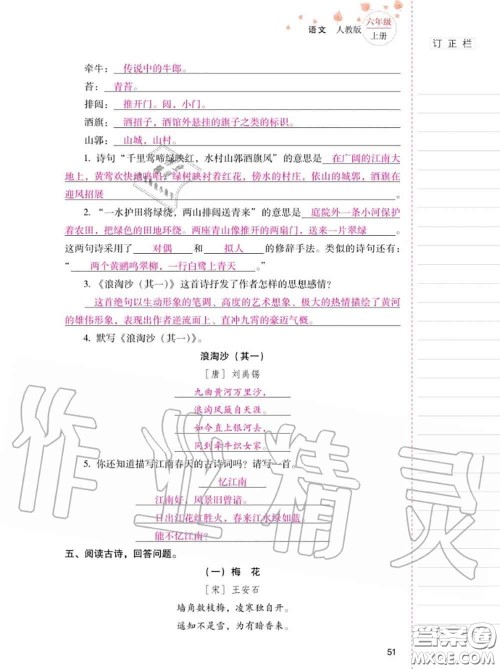 语文 人教版 六年级上册
订正栏
牵牛：传说中的牛郎。
苔：青苔。
排闼：推开门。闼，小门。
酒旗：酒招子，酒馆外悬挂的旗子之类的标识。
山郭：山城，山村。
1. 诗句“千里莺啼绿映红，水村山郭酒旗风”的意思是 在广阔的江南大
地上，黄莺欢快地鸣唱，绿树映衬着红花，傍水的村庄、依山的城郭，酒旗在
迎风招展
2. “一水护田将绿绕，两山排闼送青来”的意思是 庭院外一条小河保护
着农田，把绿色的田地环绕。两座青山像推开的两扇门，送来一片翠绿 。
这两句诗采用了 对偶 和 拟人 的修辞手法。类似的诗句还有：
“ 两个黄鹂鸣翠柳，一行白鹭上青天 ”。
3. 《浪淘沙（其一）》这首诗抒发了作者怎样的思想感情？
这首绝句以生动形象的笔调、高度的艺术想象、极大的热情描绘了黄河
的雄伟形象，表现出作者逆流而上、直冲九霄的豪迈气概。
4. 默写《浪淘沙（其一）》。
浪淘沙（其一）
［唐］刘禹锡
九曲黄河万里沙，
浪淘风簸自天涯。
如今直上银河去，
同到牵牛织女家。
5. 你还知道描写江南春天的古诗词吗？请写一首。
忆江南
江南好，风景旧曾谙。
日出江花红胜火，春来江水绿如蓝。
能不忆江南？
五、阅读古诗，回答问题。
（一）梅 花
［宋］王安石
墙角数枝梅，凌寒独自开。
遥知不是雪，为有暗香来。
51
作业精灵